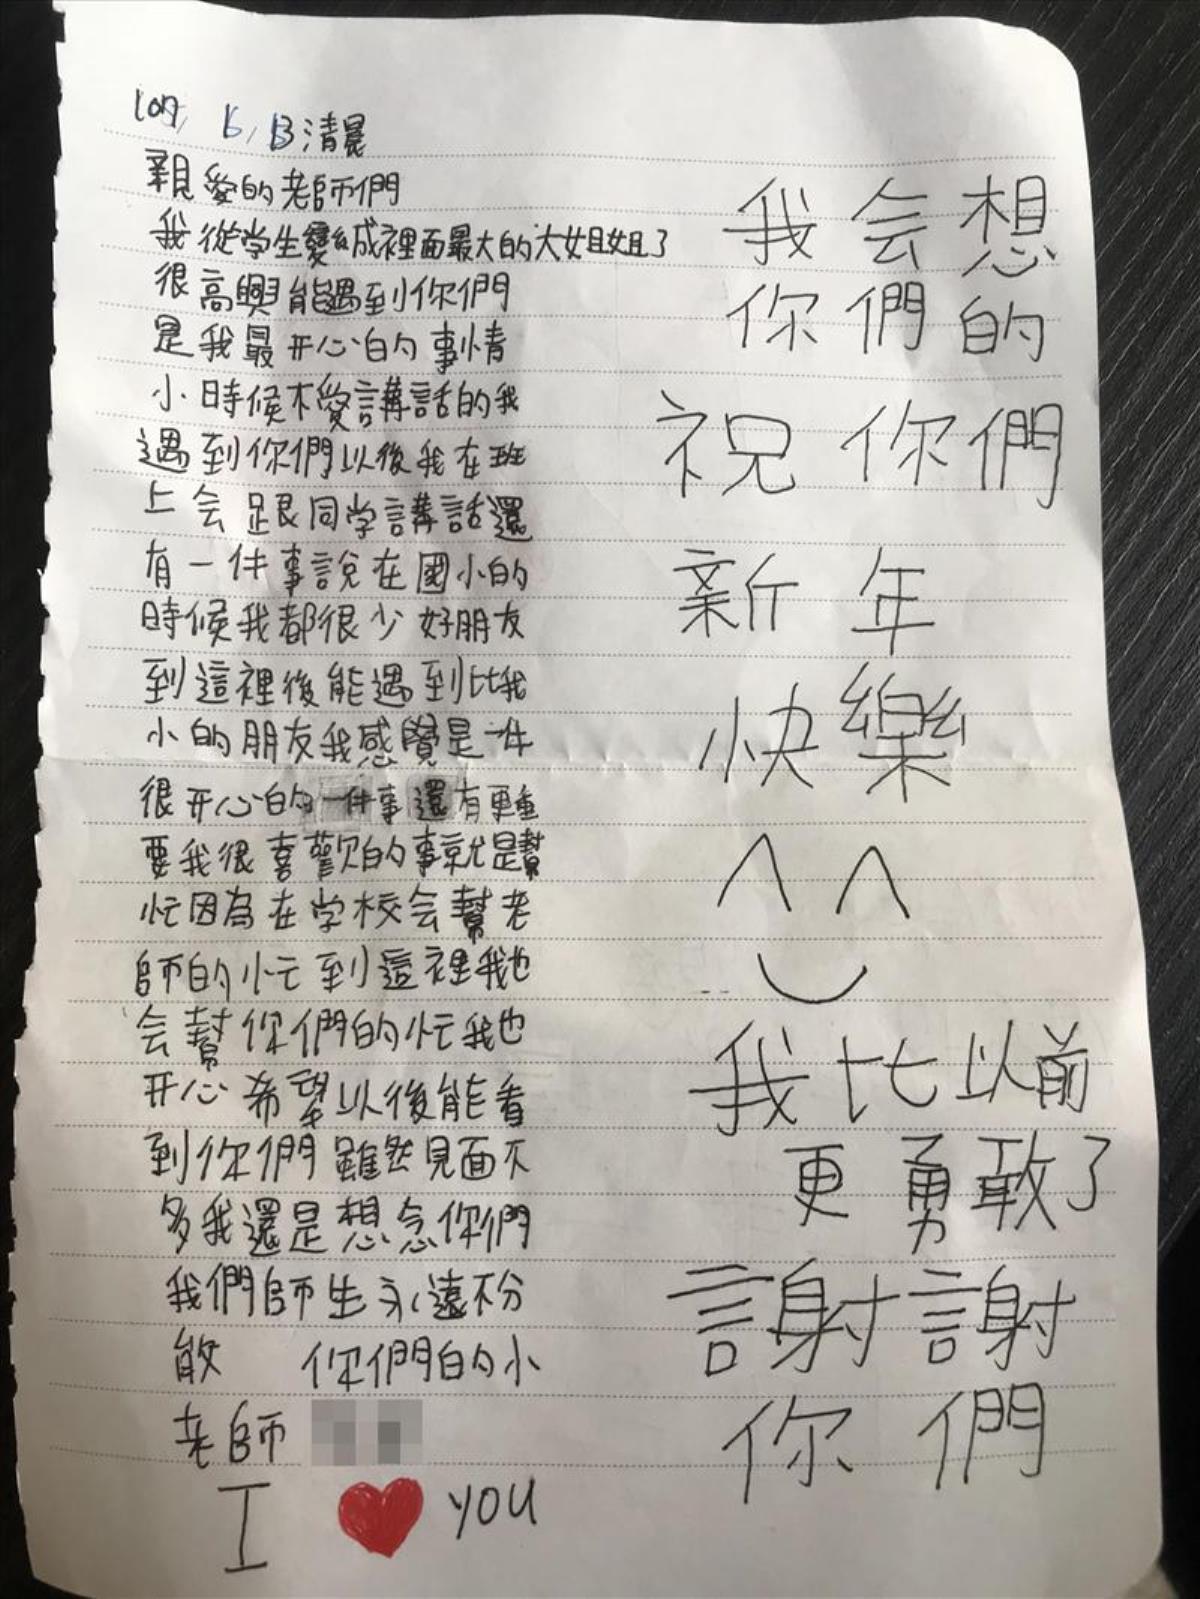 清晨
親愛的老師們
我從学生變成裡面最大的大姐姐了
很高興能遇到你們
是我最开心的事情
小時候不愛講話的我
遇到你們以後我在班
上会跟同学講話還
有一件事說在國小的
時候我都很少好朋友
到這裡後能遇到比我
小的朋友我感覺是一件
很开心的一件事還有更重
要我很喜歡的事就是幫
忙因為在学校会幫老
師的忙到這裡我也
会幫你們的忙我也
开心希望以後能看
到你們雖然見面不
多我還是想念你們
我們師生永遠不分
散 你們的小
老師
I YOU
我会想
你們的
祝你們
新年
快樂
我比以前
更勇敢了
謝謝
你們